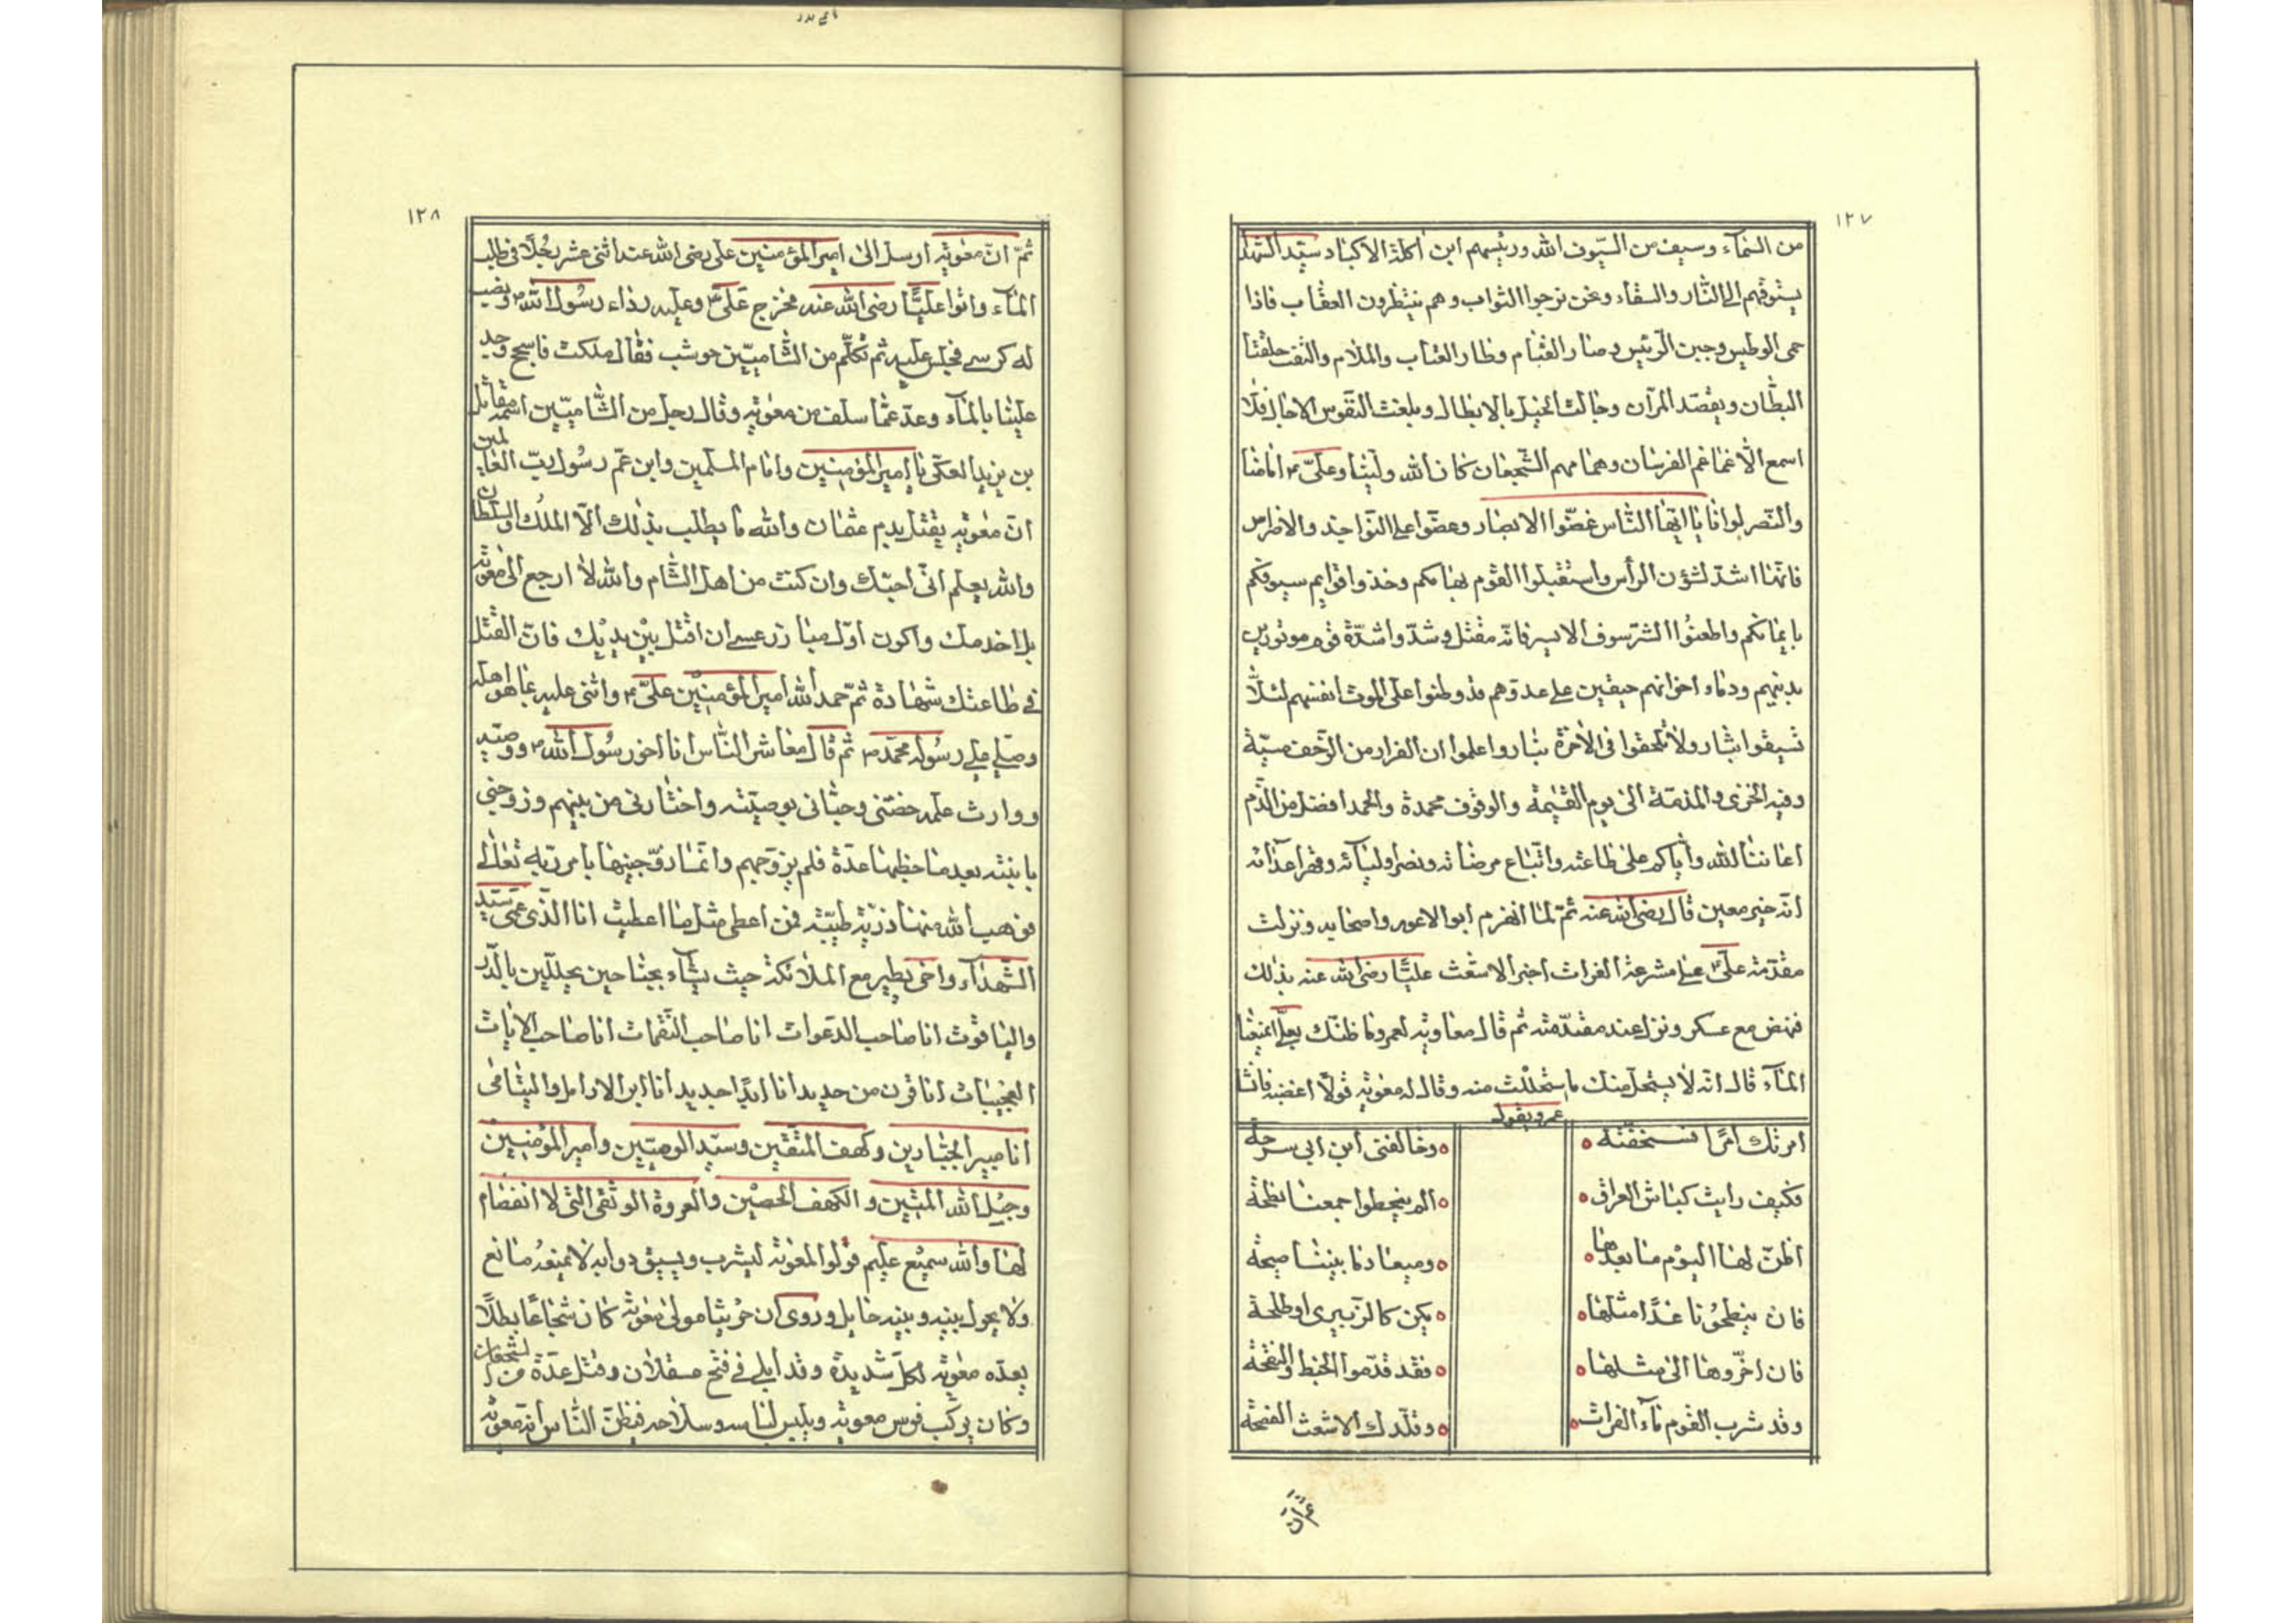 ١٢٧
من السمآء وسيف من السيوف الله ورئيسهم ابن اكلة الاكباد سيد الشهدا
يسوقهم الى النار والشقاء ونحن نرجوا الثواب وهم ينتظرون العقاب فاذا
حمى الوطيس وجبن الرئيس وصار القتام وطار العتاب والملام والتقت حلقتا
البطان وتقصد المران وجالت الخيل بالابطال وبلغت النفوس الاجال فلا
اسمع الا غماغم الفرسان وهماهم الشجعان كان الله ولينا وعلىّ امامنا
والنصر لوانا يا ايها الناس غضّوا الابصار وعضّوا على النواجذ والاضراس
فانها اشدّ لشؤن الرأس واستقبلوا القوم بهامكم وخذوا قوايم سيوفكم
بايمانكم واطعنوا الشرسوف الايسر فانه مقتل وشدّوا شدّة قوم موتورين
بدينهم ودماء اخوانهم حنقين على عدوهم قد وطنوا على الموت انفسهم لئلّا
تسبقوا بثار ولا تلحقوا فى الاخرة بنار واعلموا ان الفرار من الزحف مسبّة
وفيه الخزى والمذمّة الى يوم القيٰمة والوقوف محمدة والحمد افضل من الذّم
اعاننا الله واياكم على طاعته واتباع مرضاته ونصر اوليآئه وقهر اعدآئه
انه خير معين قال رضى الله عنه ثمّ لمّا انهزم ابو الاعور واصحابه ونزلت
مقدّمة علىّ على مشرعة الفرات اخبر الاشعث عليّا رضى الله عنه بذلك
فنهض مع عسكر ونزل عند مقدّمته ثم قال معاوية لعمرو ما ظنّك بعلّى ايمنعنا
المآء قال انه لا يستحل منك ما استحللت منه وقال له معٰوية قولا اغضبه فانشا
عمرو يقول
امرتك امرًا فسخفته ٥ وخالفنى ابن ابى سرحة
فكيف رايت كباش العراق ٥ الم ينطحوا جمعنا نطحة
اظنّ لها اليوم ما بعدها ٥ وميعاد ما بيننا صبحة
فان ينطحونا غدًا مثلها ٥ يكن كالزبيرى او طلحة
فان اخّروها الى مثلها ٥ فقد قدّموا الخبط والنفحة
وقد شرب القوم مآء الفرات ٥ وقلّدك الاشعث الفضحة
١٢٨
ثمّ انّ معٰوية ارسل الى امير المؤمنين على رضى الله عنه اثنى عشر رجلًا فى طلب
المآء واتوا عليًّا رضى الله عنه فخرج علىّ وعليه رداء رسول الله ونصب
له كرسى فجلس عليه ثم تكلّم من الشاميّين حوشب فقال ملكت فاسجح وجد
علينا بالمآء وعد عمّا سلف من معٰوية وقال رجل من الشّاميّين اسمه مقاتل
بن يزيد العكى يا امير المؤمنين وامام المسلمين وابن عم رسول ربّ العالمين
انّ معٰوية يقتل بدم عثمان والله ما يطلب بذلك الّا الملك والسلطان
والله يعلم انّى احبّك وان كنت من اهل الشام والله لا ارجع الى معٰوية
بل اخدمك واكون اوّل مبارز عسى ان اقتل بين يديك فانّ القتل
فى طاعتك شهادة ثمّ حمد الله امير المؤمنين علىّ واثنى عليه بما هو اهله
وصلى على رسوله محمّد ثم قال معاشر الناس انا اخو رسول الله ووصيّه
ووارث علمه خصّنى وحبانى بوصيّته واختارنى من بينهم وزوجنى
بابنته بعد ما خطبها عدّة فلم يزوّجهم وانّما زوّجنيها بامر ربّه تعالى
فوهب الله منها ذرّيّة طيّبة فمن اعطى مثل ما اعطيت انا الذى عمى سيّد
الشّهدآء واخى يطير مع الملائكة حيث يشآء بجناحين محلّلين بالدّر
والياقوت انا صاحب الدعوات انا صاحب النّقمات انا صاحب الايات
العجيبات انا قرن من حديد انا ابدًا جديد انا ابو الارامل واليتامى
انا مبير الجبّارين وكهف المتّقين وسيّد الوصيّين وامير المؤمنين
وحبل الله المتين والكهف الحصين والعروة الوثقى التى لا انفصام
لها والله سميع عليم قولوا لمعٰوية ليشرب ويسق دوابه لا يمنعه مانع
ولا يحول بينه وبينه حايل وروى ان حريثا مولى معٰوية كان شجاعًا بطلًا
يعدّه معٰوية لكل شديدة وقد ابلى فى فتح عسقلان وقتل عدّة من الشجعان
وكان يركب فرس معوية ويلبس لباسه وسلاحه فيظنّ الناس انه معٰوية